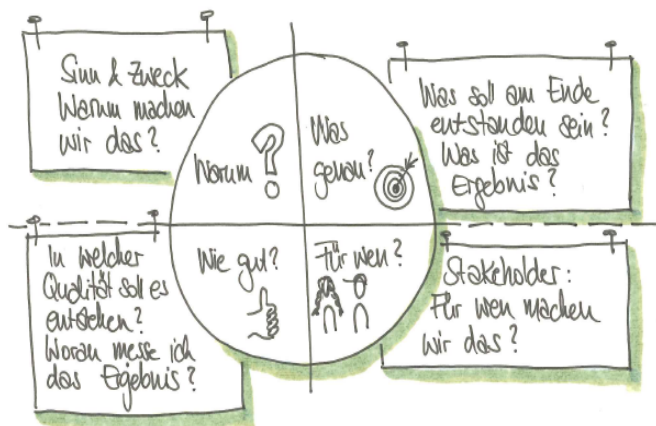 Sinn & Zweck
Warum machen
wir das?
Warum
Was
genau?
Was soll am Ende
entstanden sein?
Was ist das
Ergebnis?
In welcher
Qualität soll es
entstehen?
Woran messe ich
das Ergebnis?
Wie gut?
Für wen?
Stakeholder:
Für wen machen
wir das?